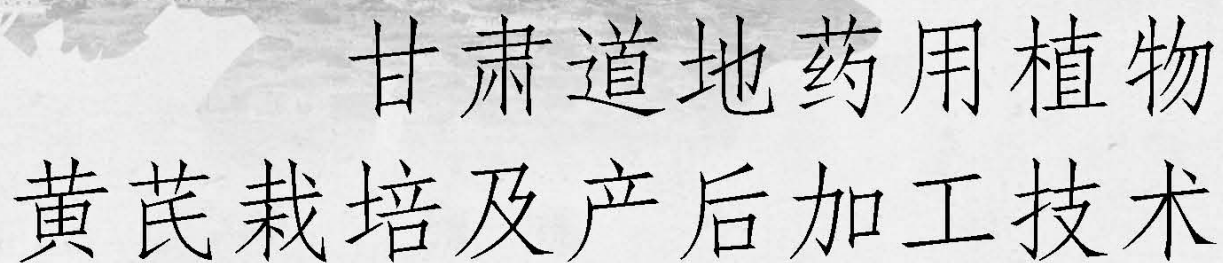 甘肃道地药用植物
黄芪栽培及产后加工技术